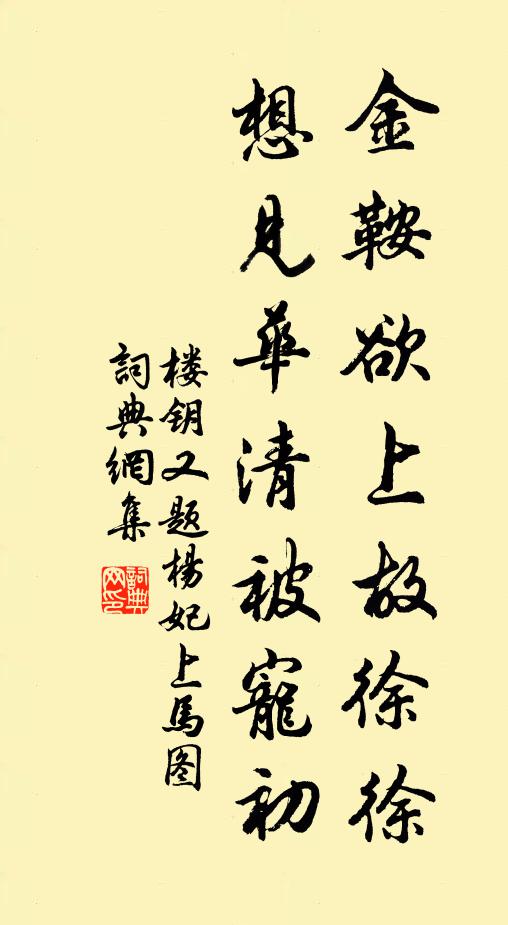 金鞍欲上故徐徐
想見華清被寵初
楼钥又题楊妃上馬图
詞典網集
詞典網印